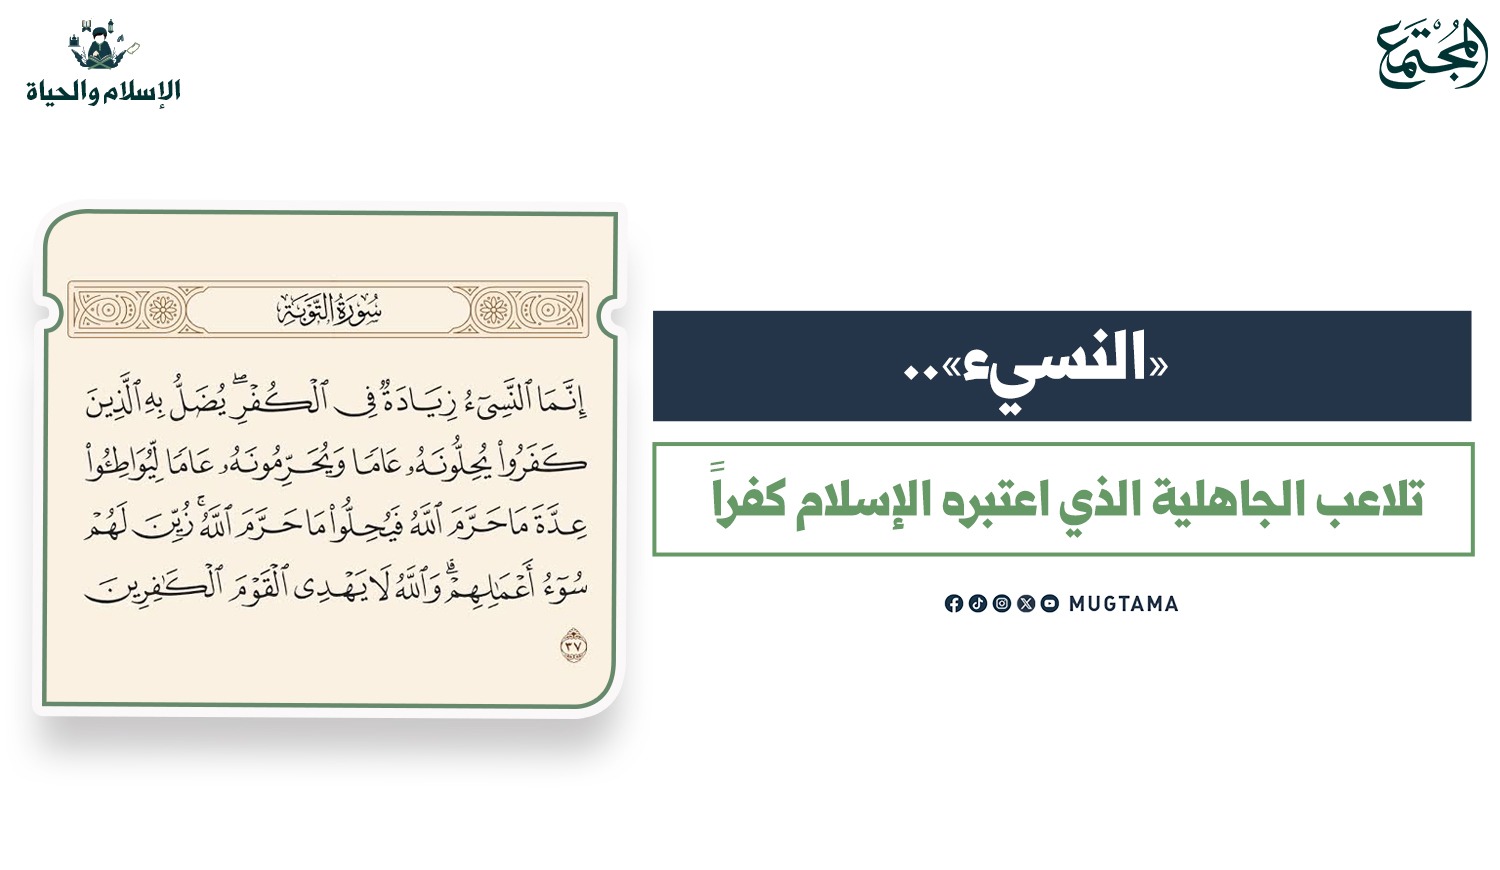 المجتمع
الإسلام والحياة
«النسيء»..
تلاعب الجاهلية الذي اعتبره الإسلام كفراً
MUGTAMA
سُورَةُ التَّوْبَةِ
إِنَّمَا ٱلنَّسِىٓءُ زِيَادَةٌ فِى ٱلْكُفْرِ ۖ يُضَلُّ بِهِ ٱلَّذِينَ
كَفَرُوا۟ يُحِلُّونَهُۥ عَامًا وَيُحَرِّمُونَهُۥ عَامًا لِّيُوَاطِـُٔوا۟
عِدَّةَ مَا حَرَّمَ ٱللَّهُ فَيُحِلُّوا۟ مَا حَرَّمَ ٱللَّهُ ۚ زُيِّنَ لَهُمْ
سُوٓءُ أَعْمَـٰلِهِمْ ۗ وَٱللَّهُ لَا يَهْدِى ٱلْقَوْمَ ٱلْكَـٰفِرِينَ
٣٧